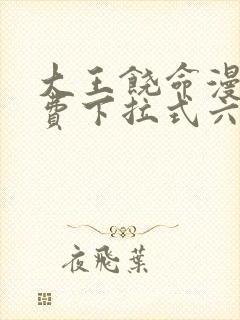 大王饶命漫
费下拉式六
夜飛葉